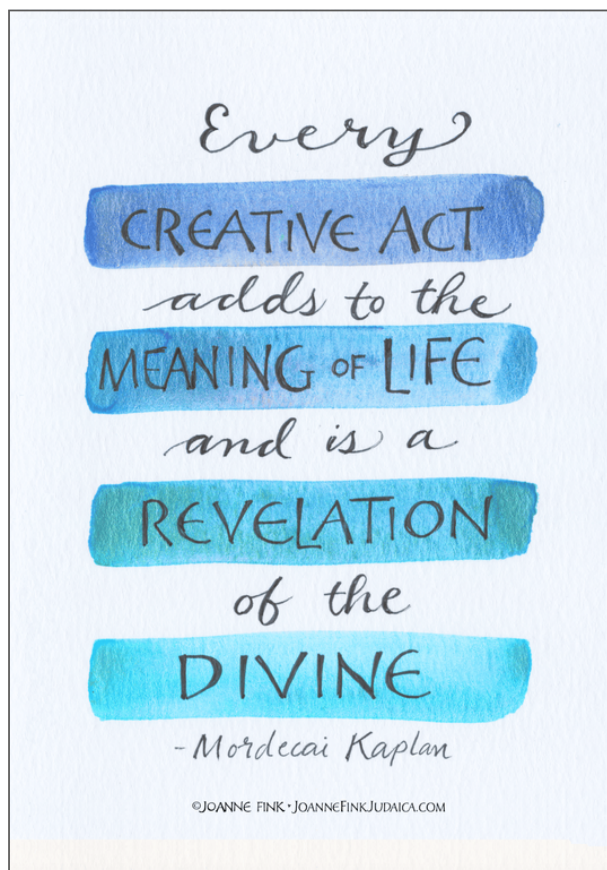 Every
CREATIVE ACT
adds to the
MEANING OF LIFE
and is a
REVELATION
of the
DIVINE
-Mordecai Kaplan
©JOANNE FINK • JOANNEFINKJUDAICA.COM